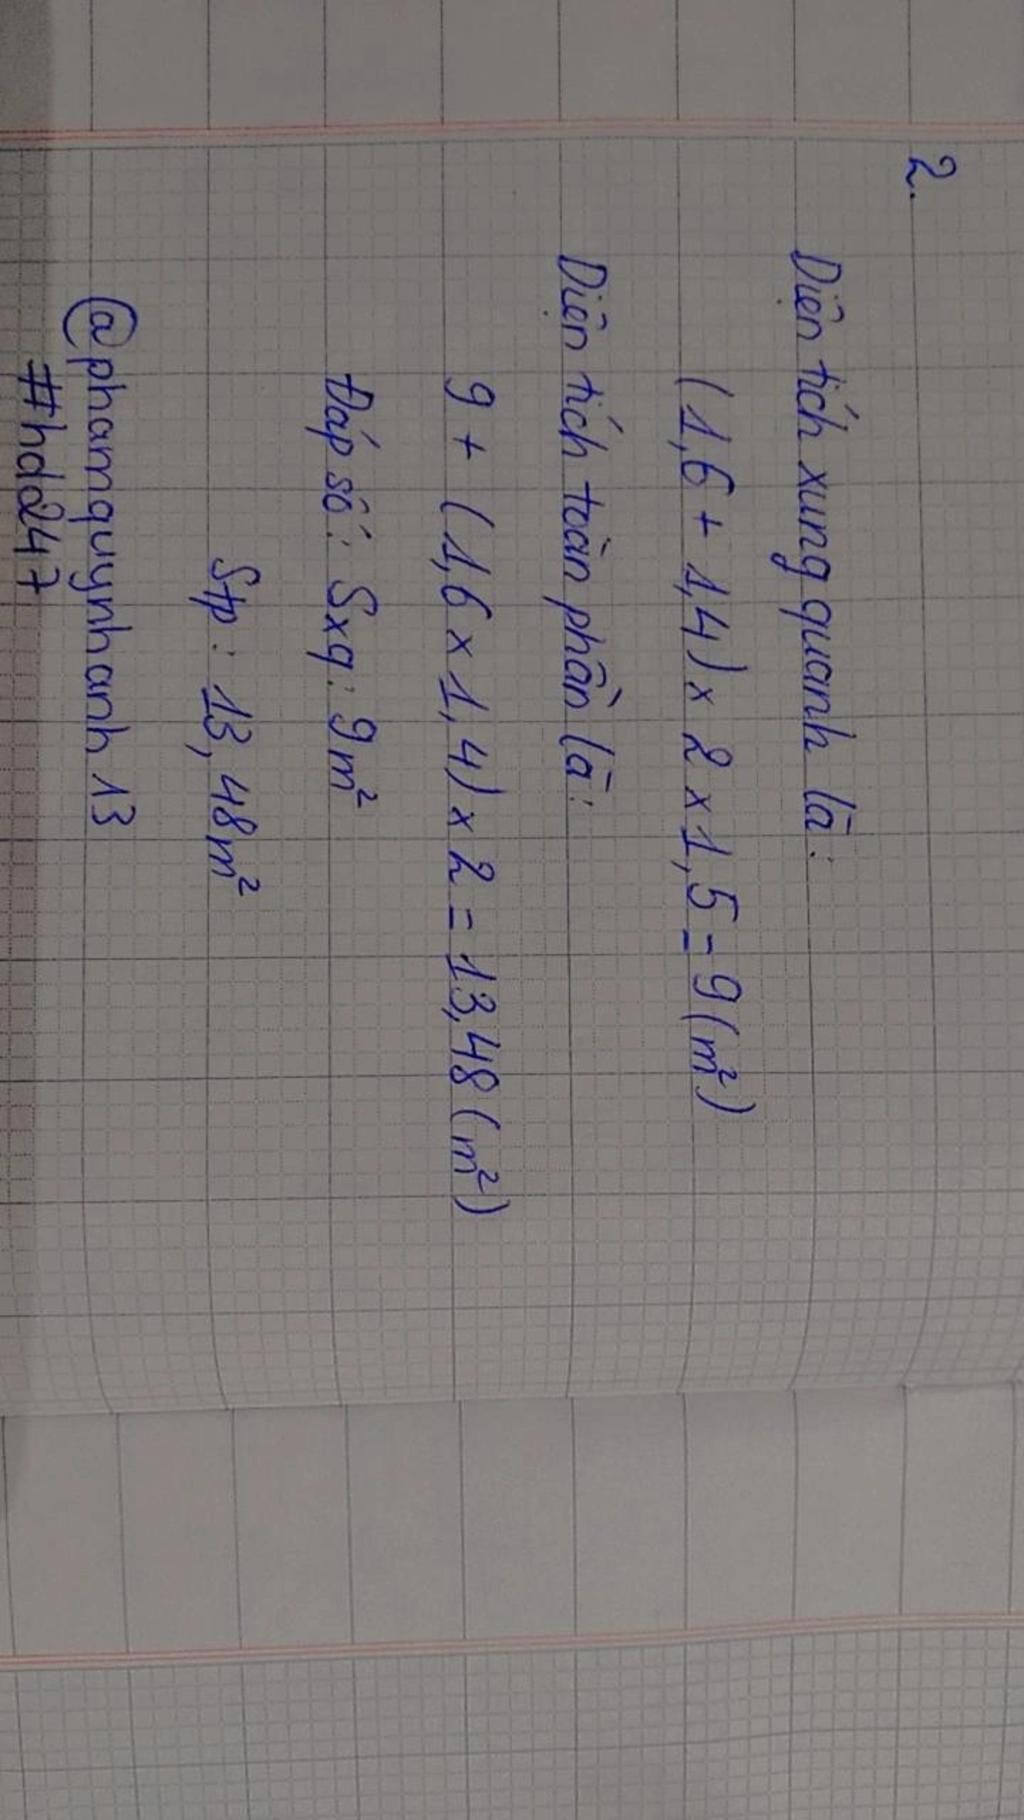 2.
Diện tích xung quanh là:
(1,6 + 1,4) x 2 x 1,5 = 9 (m²)
Diện tích toàn phần là:
9 + (1,6 x 1,4) x 2 = 13,48 (m²)
Đáp số: Sxq: 9m²
Stp: 13,48m²
@phamquynhanh13
#hd247